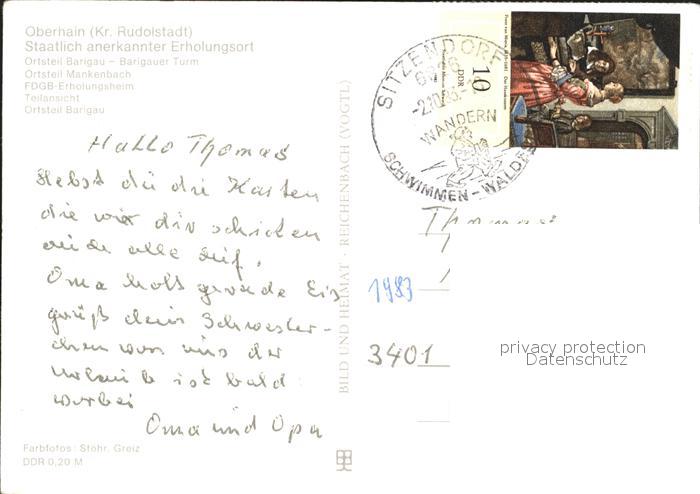 Oberhain (Kr. Rudolstadt)
Staatlich anerkannter Erholungsort
Ortsteil Barigau – Barigauer Turm
Ortsteil Mankenbach
FDGB-Erholungsheim
Teilansicht
Ortsteil Barigau
Hallo Thomas
Hebst du die Karten
die wir dir schicken
auch alle auf,
Oma holt gerade Eis
grüß dein Schwester-
chen von uns der
Urlaub ist bald
vorbei
Oma und Opa
Farbfotos: Stöhr, Greiz
DDR 0,20 M
BILD UND HEIMAT · REICHENBACH (VOGTL)
SITZENDORF
WANDERN
SCHWIMMEN – WALDBAD
DDR
10
Thomas
1983
3401
privacy protection
Datenschutz